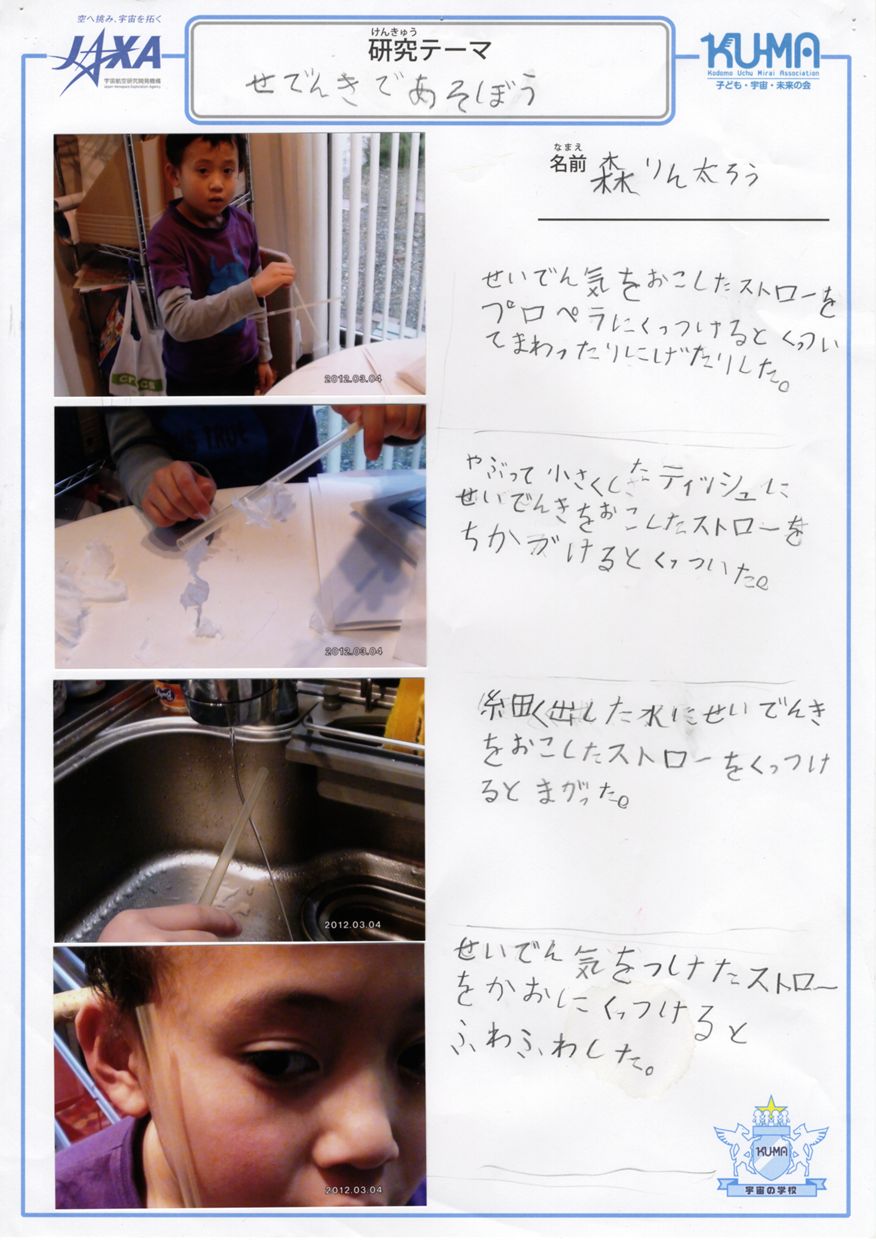 空へ挑み、宇宙を拓く
JAXA
宇宙航空研究開発機構
Japan Aerospace Exploration Agency
けんきゅう
研究テーマ
せでんきであそぼう
KU-MA
Kodomo Uchu Mirai Association
子ども・宇宙・未来の会
なまえ
名前 森りん太ろう
せいでん気をおこしたストローを
プロペラにくっつけるとくっつい
てまわったりにげたりした。
2012.03.04
やぶって小さくした ティッシュに
せいでんきをおこしたストローを
ちかづけるとくっついた。
2012.03.04
細く出した水にせいでんき
をおこしたストローをくっつけ
るとまがった。
2012.03.04
せいでん気をつけたストロー
をかおにくっつけると
ふわふわした。
2012.03.04
KU-MA
宇宙の学校